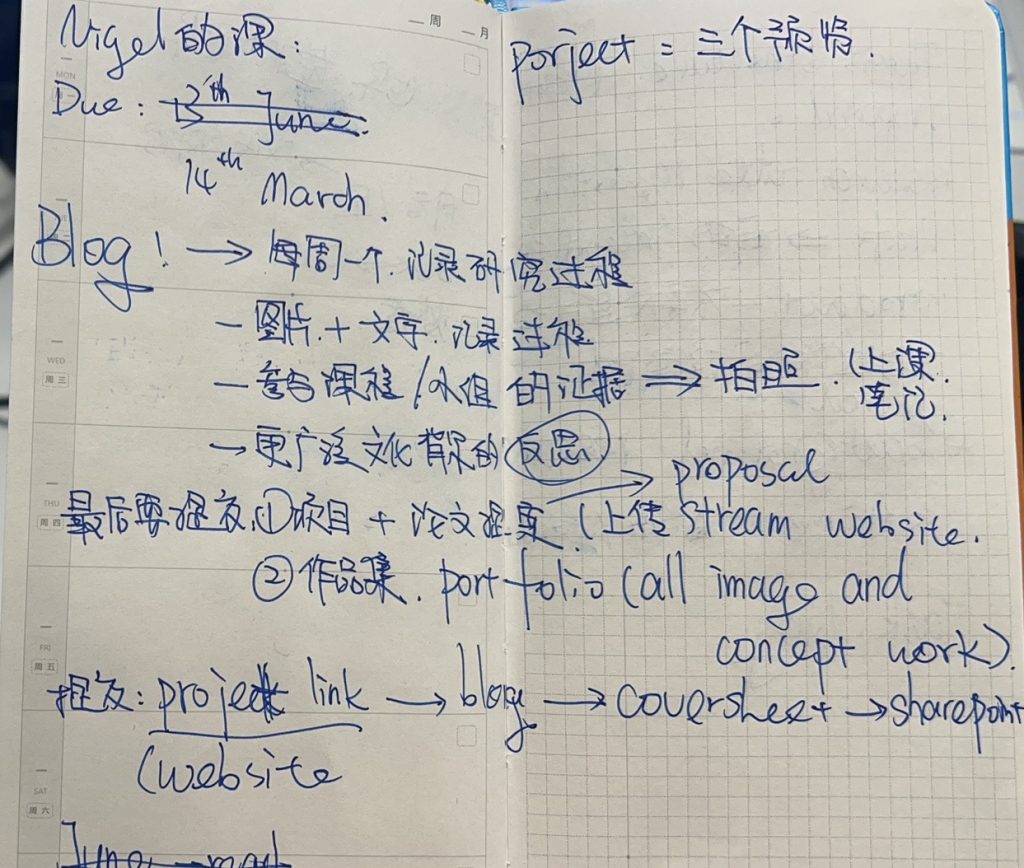 一周 一月
Nigel 的课:
porject = 三个预告.
MON
Due: 13th June.
14th March.
Blog! → 每周一个. 记录研究过程
- 图片 + 文字. 记录过程
WED
周三
- 参与课程/小组的证据 ⇒ 拍照. (上课.
笔记.
- 更广泛文化背景的反思
→ proposal
THU
周四
最后要提交. ①项目 + 论文提案. (上传 Stream website.
② 作品集. portfolio (all image and
concept work).
FRI
周五
提交: project link → blog → Coversheet → sharepoint
(website
SAT
周六
June